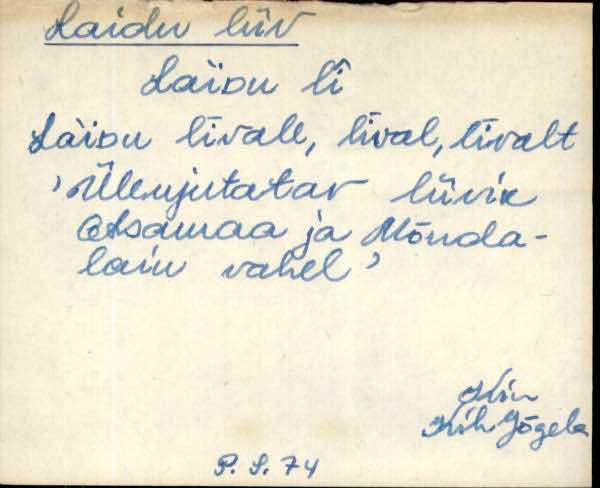 Laidu liiv
Laiɒu lî
Laiɒu livale, lival, livalt
'Üleujutatav liivik
Asamaa ja Mõnda-
laiu vahel'
Khn
Kih Jõgela
P. S. 74